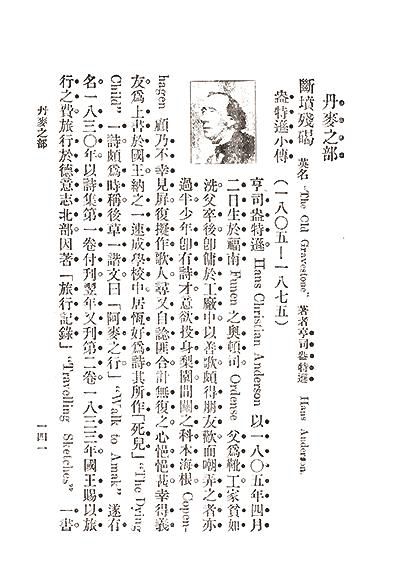 丹麥之部
斷墳殘碣 英名 "The Old Gravestone" 著者亨司盎特遜 Hans Anderson.
盎特遜小傳
（一八〇五―一八七五）
亨司盎特遜 Hans Christian Anderson 以一八〇五年四月
二日生於福南 Funen 之奧頓司 Ordense 父爲靴工家貧如
洗父卒後卽傭於工廠中以善歌頗得朋友歡而嘲弄之者亦
過半少年卽有詩才意欲投身梨園間關之科本海根 Copen-
hagen 顧乃不幸見屏復擬作歌人尋又自諗匪合計無復之心悒悒甚幸得義
友爲上書於國王納之一速成學校中居恆好爲詩其所作「死兒」 "The Dying
Child" 一詩頗爲時稱後草一諧文曰「阿麥之行」 "Walk to Amak" 遂有
名一八三〇年以詩集第一卷付刊翌年又刊第二卷一八三三年國王賜以旅
行之費旅行於德意志北部因著「旅行記錄」 "Travelling Sketches" 一書
丹麥之部
一四一